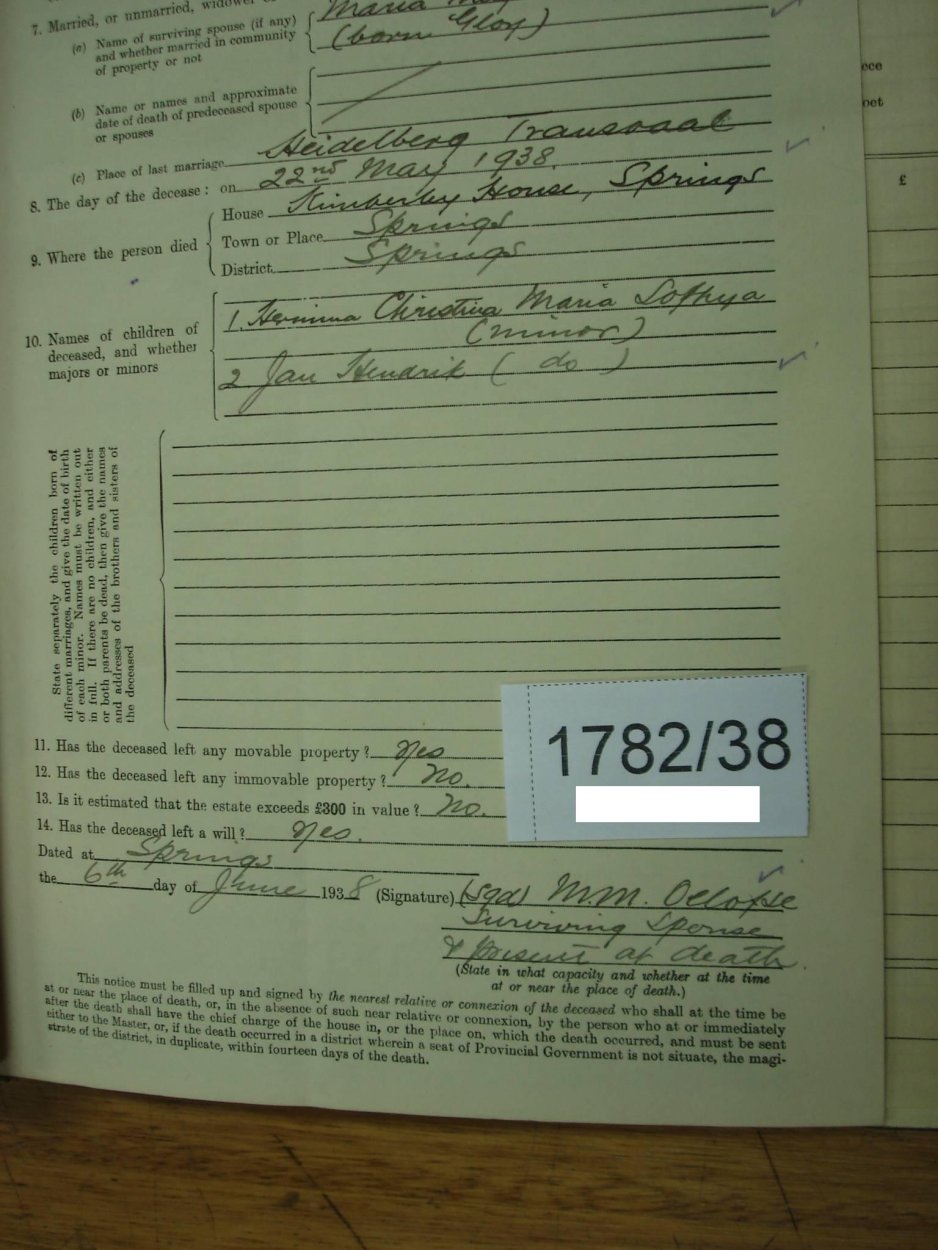 7. Married, or unmarried, widower
Maria
(a) Name of surviving spouse (if any)
and whether married in community
of property or not
(born Gloy)
(b) Name or names and approximate
date of death of predeceased spouse
or spouses
(c) Place of last marriage Heidelberg Transvaal
8. The day of the decease: on 22nd May 1938
9. Where the person died
House Kimberley House, Springs
Town or Place Springs
District Springs
10. Names of children of
deceased, and whether
majors or minors
1. Hermina Christina Maria Sophya
(minor)
2 Jan Hendrik (do)
State separately the children born of
different marriages, and give the date of birth
of each minor. Names must be written out
in full. If there are no children, and either
or both parents be dead, then give the names
and addresses of the brothers and sisters of
the deceased
ece
oct
£
1782/38
11. Has the deceased left any movable property? Yes
12. Has the deceased left any immovable property? No.
13. Is it estimated that the estate exceeds £300 in value? No.
14. Has the deceased left a will? Yes.
Dated at Springs
the 6th day of June 1938 (Signature) (sgd) M.M. Oelofse
Surviving Spouse
& present at death
(State in what capacity and whether at the time
at or near the place of death.)
This notice must be filled up and signed by the nearest relative or connexion of the deceased who shall at the time be
at or near the place of death, or, in the absence of such near relative or connexion, by the person who at or immediately
after the death shall have the chief charge of the house in, or the place on, which the death occurred, and must be sent
either to the Master, or, if the death occurred in a district wherein a seat of Provincial Government is not situate, the magi-
strate of the district, in duplicate, within fourteen days of the death.